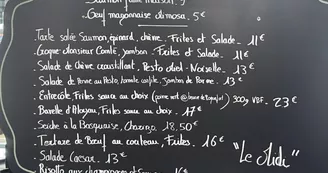 maison. 9
Oeuf mayonnaise mimosa. 5€
Tarte salée Saumon, épinard, chèvre. Frites et Salade. 11€
Croque Monsieur Comté, jambon. Frites et Salade. 11€
Salade de Chèvre croustillant, Pesto Miel-Noisette. 13€
Salade de Pomme au Pesto, tomate confite, Jambon de Parme. 13€
Entrecôte Frites sauce au choix (poivre vert @ 300g VBF. 23€
Bavette d'Aloyau, Frites sauce au choix. 17€
Seiche à la Basquaise, Chorizo. 18,50€
Tartare de Boeuf au couteau, Frites. 16€
Salade Caesar. 13€
Risotto aux champignons 16€
"Le Midi"